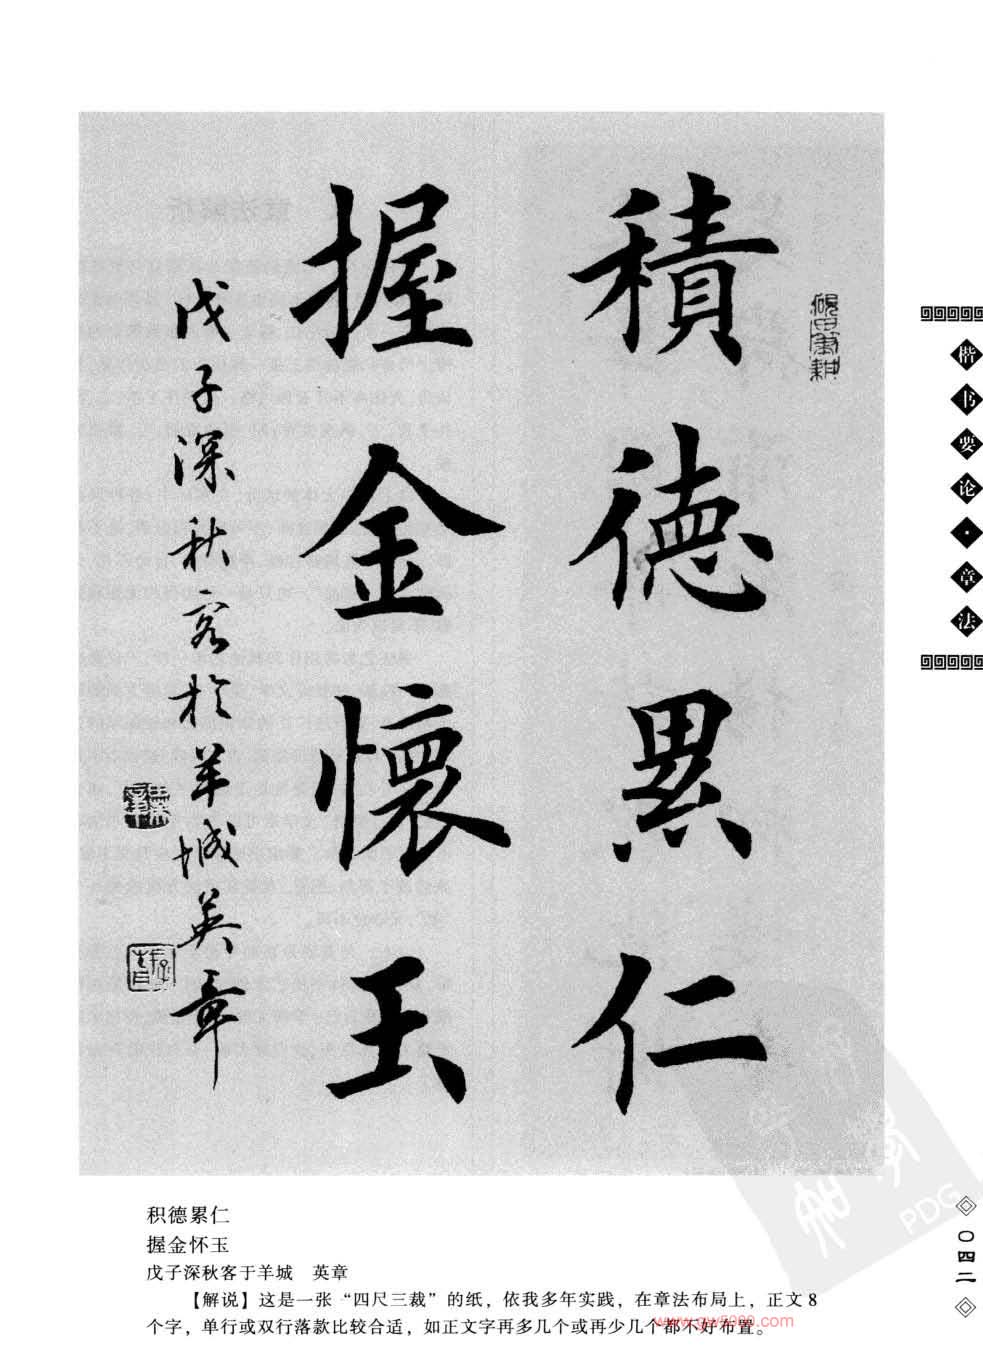 積德累仁
握金懷玉
戊子深秋客於羊城英章
硯田筆耕
楷书要论·章法
积德累仁
握金怀玉
戊子深秋客于羊城 英章
【解说】这是一张“四尺三裁”的纸，依我多年实践，在章法布局上，正文8
个字，单行或双行落款比较合适，如正文字再多几个或再少几个都不好布置。
〇四二
PDG
www.gw5000.com